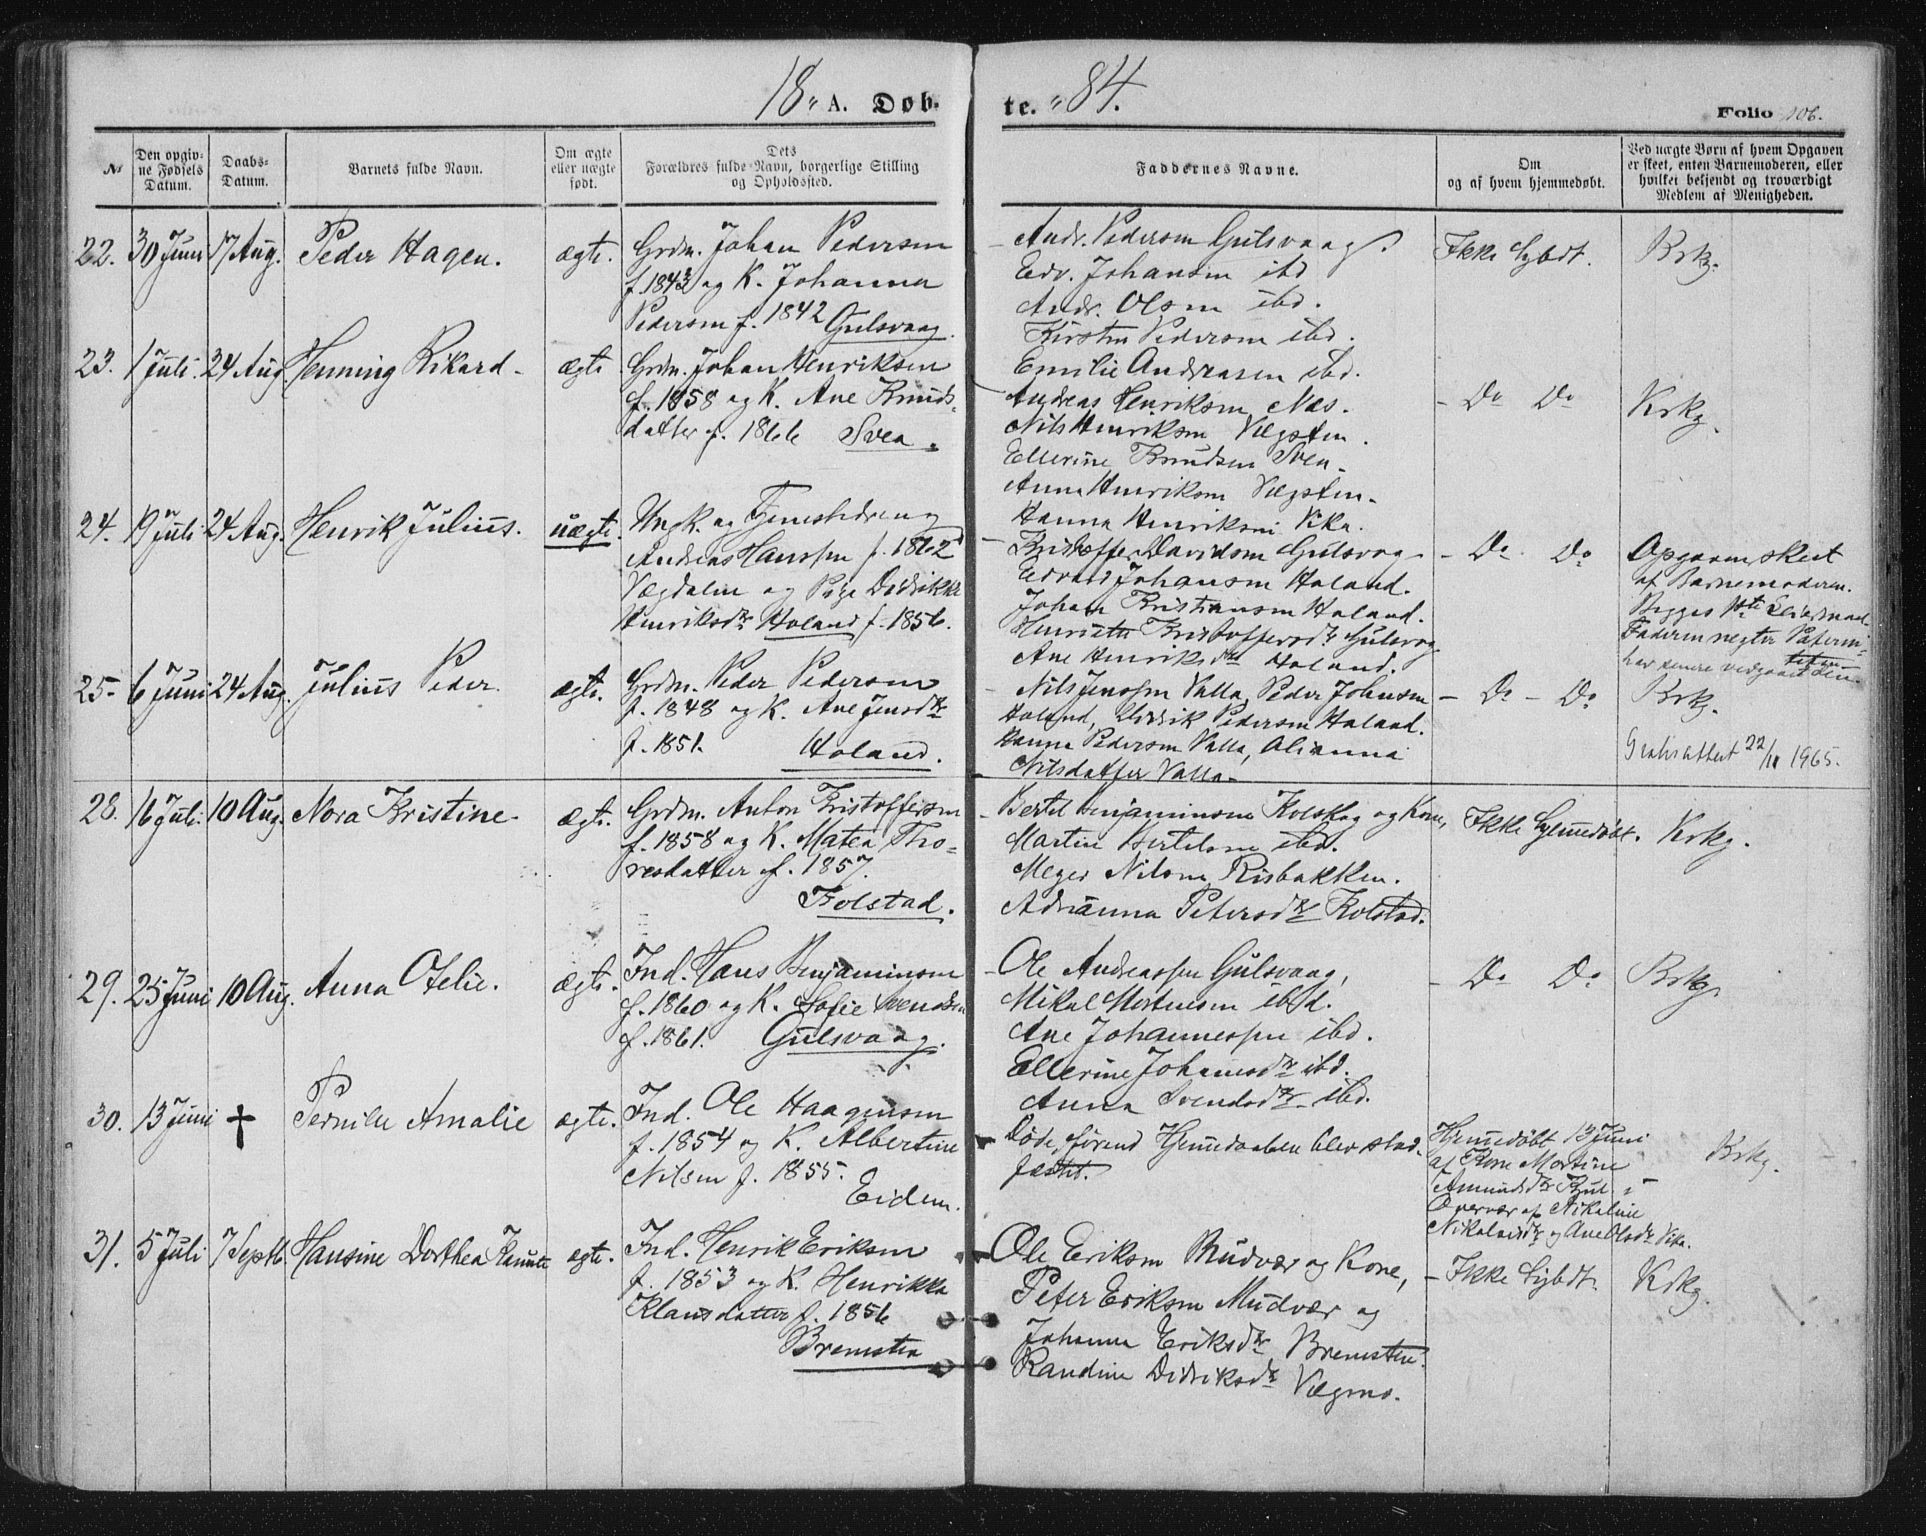 18 „ A. Døb-
te. „ 84.
Folio 106.
No
Den opgiv-
ne Fødsels
Datum.
Daabs-
Datum.
Barnets fulde Navn.
Om ægte
eller uægte
født.
Dets
Forældres fulde Navn, borgerlige Stilling
og Opholdssted.
Faddernes Navne.
Om
og af hvem hjemmedøbt.
Ved uægte Børn af hvem Opgaven
er skeet, enten Barnemoderen, eller
hvilket bekjendt og troværdigt
Medlem af Menigheden.
22. 30 Juni 17 Aug. Peder Hagen. ægte.
Grdm. Johan Pedersen
f. 1843 og K. Johanna
Pedersen f. 1842 Gulsvaag.
Andr. Pedersen Gulsvaag.
Edv. Johansen ibd
Andr. Olsen ibd.
Kirsten Pedersen ibd.
Emilie Andreasen ibd.
Ikke Hjbdt.
Krkg.
23. 1 Juli. 24 Aug. Henning Rikard - ægte
Grdm. Johan Henriksen
f. 1858 og K. Ane Knuds-
datter f. 1866 Svea.
Andreas Henriksen Næs.
Nils Henriksen Vægsten.
Ellerine Knudsen Svea.
Anna Henriksen Vægsten.
Hanna Henriksen Vika.
- Do Do
Krkg.
24. 19 Juli 24 Aug. Henrik Julius. uægte.
Ungk. og Tjenestedreng
Andreas Hanssen f. 1862
Vægdalen og Pige Didrikke
Henriksdtr Holand f. 1856.
Kristoffer Davidsen Gulsvag
Edvard Johansen Holand.
Johan Kristiansen Holand.
Henriette Kristoffersdtr Gulsvag
Ane Henriksdtr Holand.
- Do Do
Opgaven skeet
af Barnemoderen.
Begges 1ste Leiermaal.
Faderen negter Paterni-
teten
har senere vedgaaet den
25- 6 Juni 24 Aug. Julius Peder. ægte.
Grdm. Peder Pedersen
f. 1848 og K. Ane Jensdtr
f. 1851. Holand.
Nils Jenssen Valla, Peder Johnsen
Holand, Didrik Pedersen Holand.
Hanna Pedersen Valla, Alianna
Nilsdatter Valla.
- Do - Do
Krkg.
Gratisattest 22/11 1965.
28. 16 Juli. 10 Aug. Nora Kristine. ægte.
Grdm. Anton Kristoffersen
f. 1858 og K. Matea Tho-
resdatter f. 1857.
Folstad.
Bertel Benjaminsen Kolskog og Kone,
Martin Bertelsen ibd.
Meyer Nilsen Risbakken.
Adrianna Petersdtr Kolstad.
Ikke Hjemmedøbt.
Krkg.
29. 25 Juni 10 Aug. Anna Otelie. ægte.
Ind. Hans Benjaminsen
f. 1860 og K. Sofie Svendsen
f. 1861. Gulsvaag.
Ole Andreassen Gulsvaag,
Mikal Mortensen ibd.
Ane Johannessen ibd.
Ellerine Johansdtr ibd.
Anna Svendsdtr ibd.
- Do Do
Krkg.
30. 13 Juni † Pernille Amalie ægte.
Ind. Ole Haagensen
f. 1854 og K. Albertine
Nilsen f. 1855.
Eidem.
Døde førend Hjemmedaaben blev stad-
fæstet.
Hjemmedøbt 13 Juni
af Kone Martine
Amundsdtr Kjul i
Overvær af Nikoline
Nikolaisdtr og Ane Olsdtr Vika.
Krkg.
31. 5 Juli 7 Septb. Hansine Dorthea Kanutte ægte.
Ind. Henrik Eriksen
f. 1853 og K. Henrikka
Klausdatter f. 1856
Bremsten
Ole Eriksen Mudvær og Kone,
Peter Eriksen Mudvær og
Johanna Eriksdtr Bremsten.
Randine Didriksdtr Vægmo.
- Ikke Hjbdt.
Krkg.